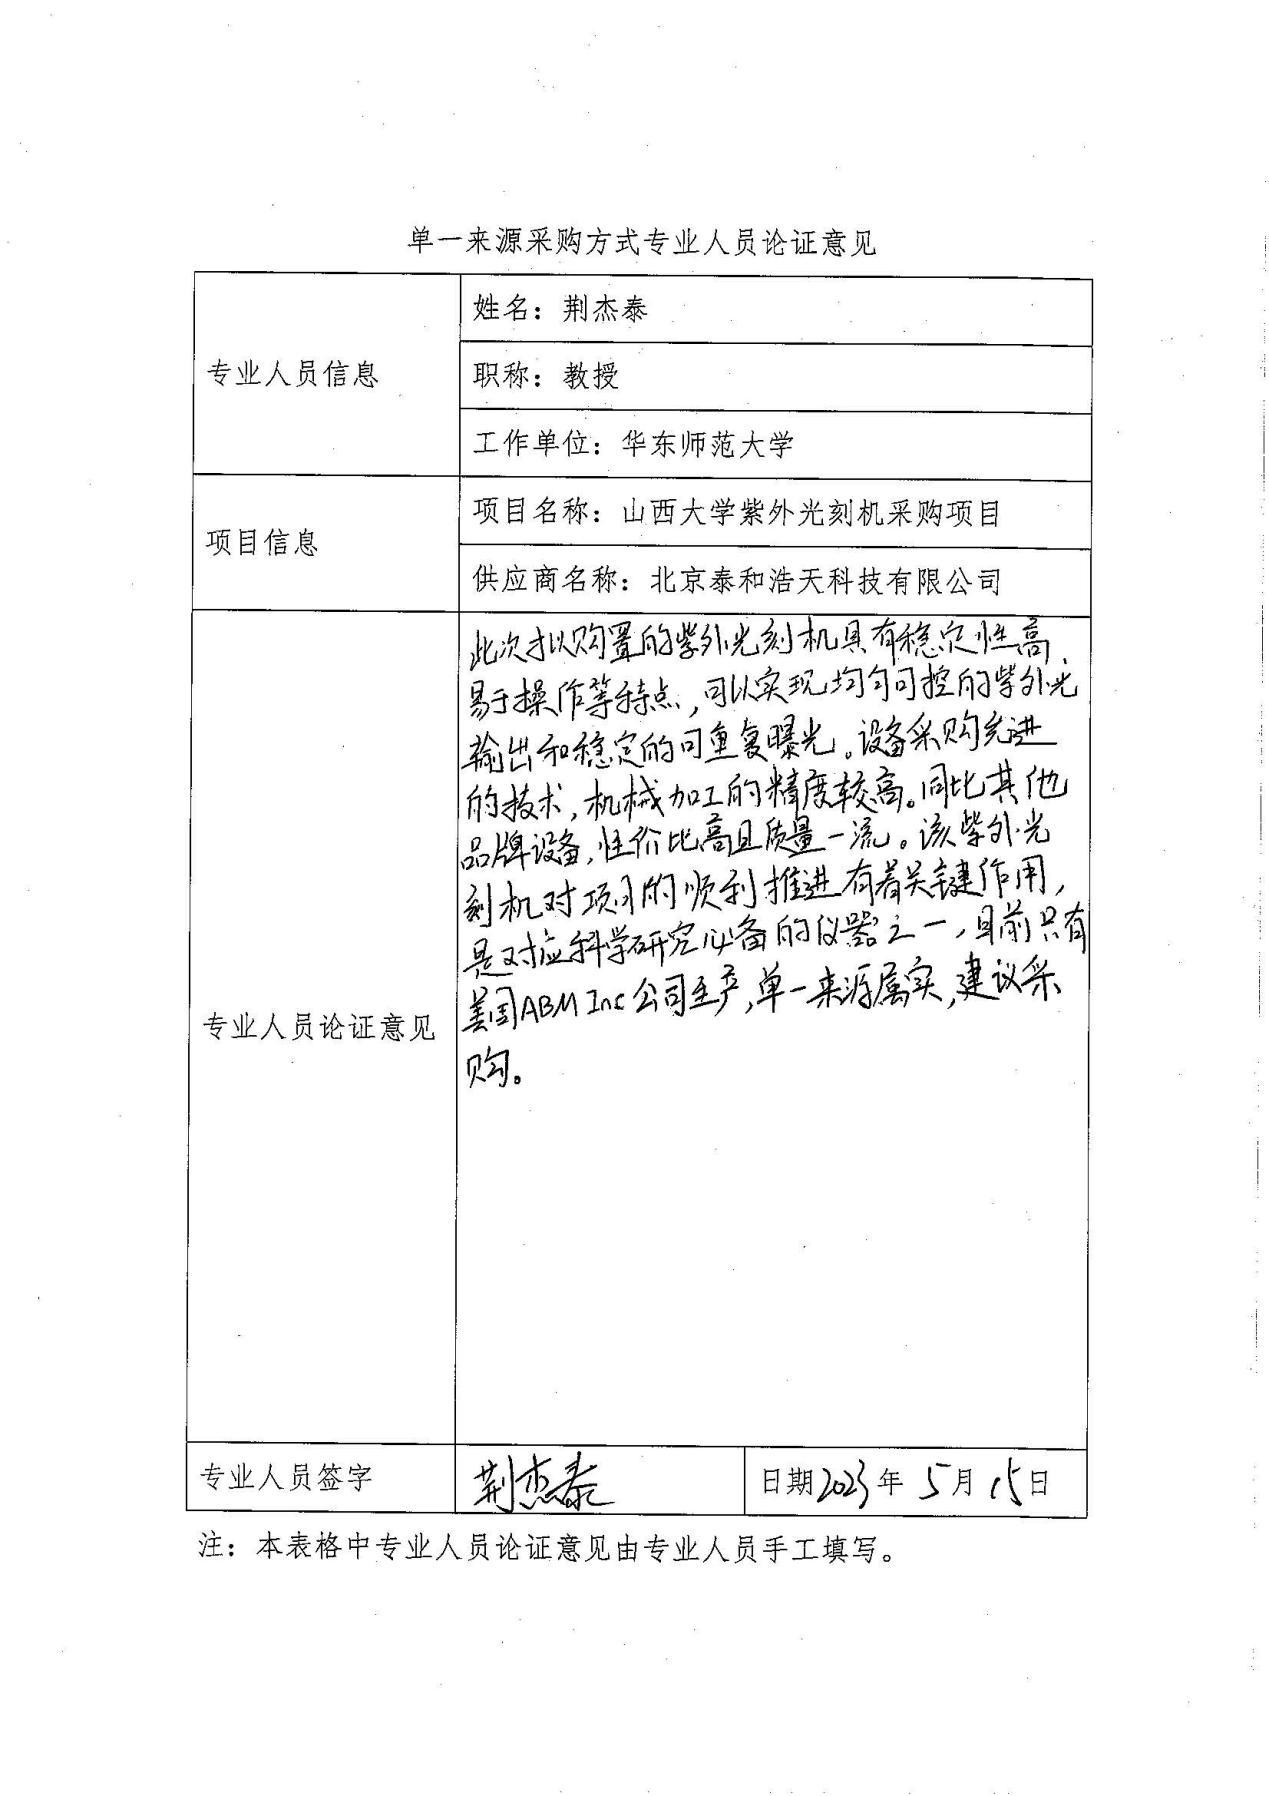 单一来源采购方式专业人员论证意见
专业人员信息
姓名：荆杰泰
职称：教授
工作单位：华东师范大学
项目信息
项目名称：山西大学紫外光刻机采购项目
供应商名称：北京泰和浩天科技有限公司
专业人员论证意见
此次拟购置的紫外光刻机具有稳定性高、
易于操作等特点，可以实现均匀可控的紫外光
输出和稳定的可重复曝光。设备采购先进
的技术，机械加工的精度较高。同比其他
品牌设备，性价比高且质量一流。该紫外光
刻机对项目的顺利推进有着关键作用，
是对应科学研究必备的仪器之一，目前只有
美国ABM Inc公司生产，单一来源属实，建议采
购。
专业人员签字
荆杰泰
日期2023年5月15日
注：本表格中专业人员论证意见由专业人员手工填写。